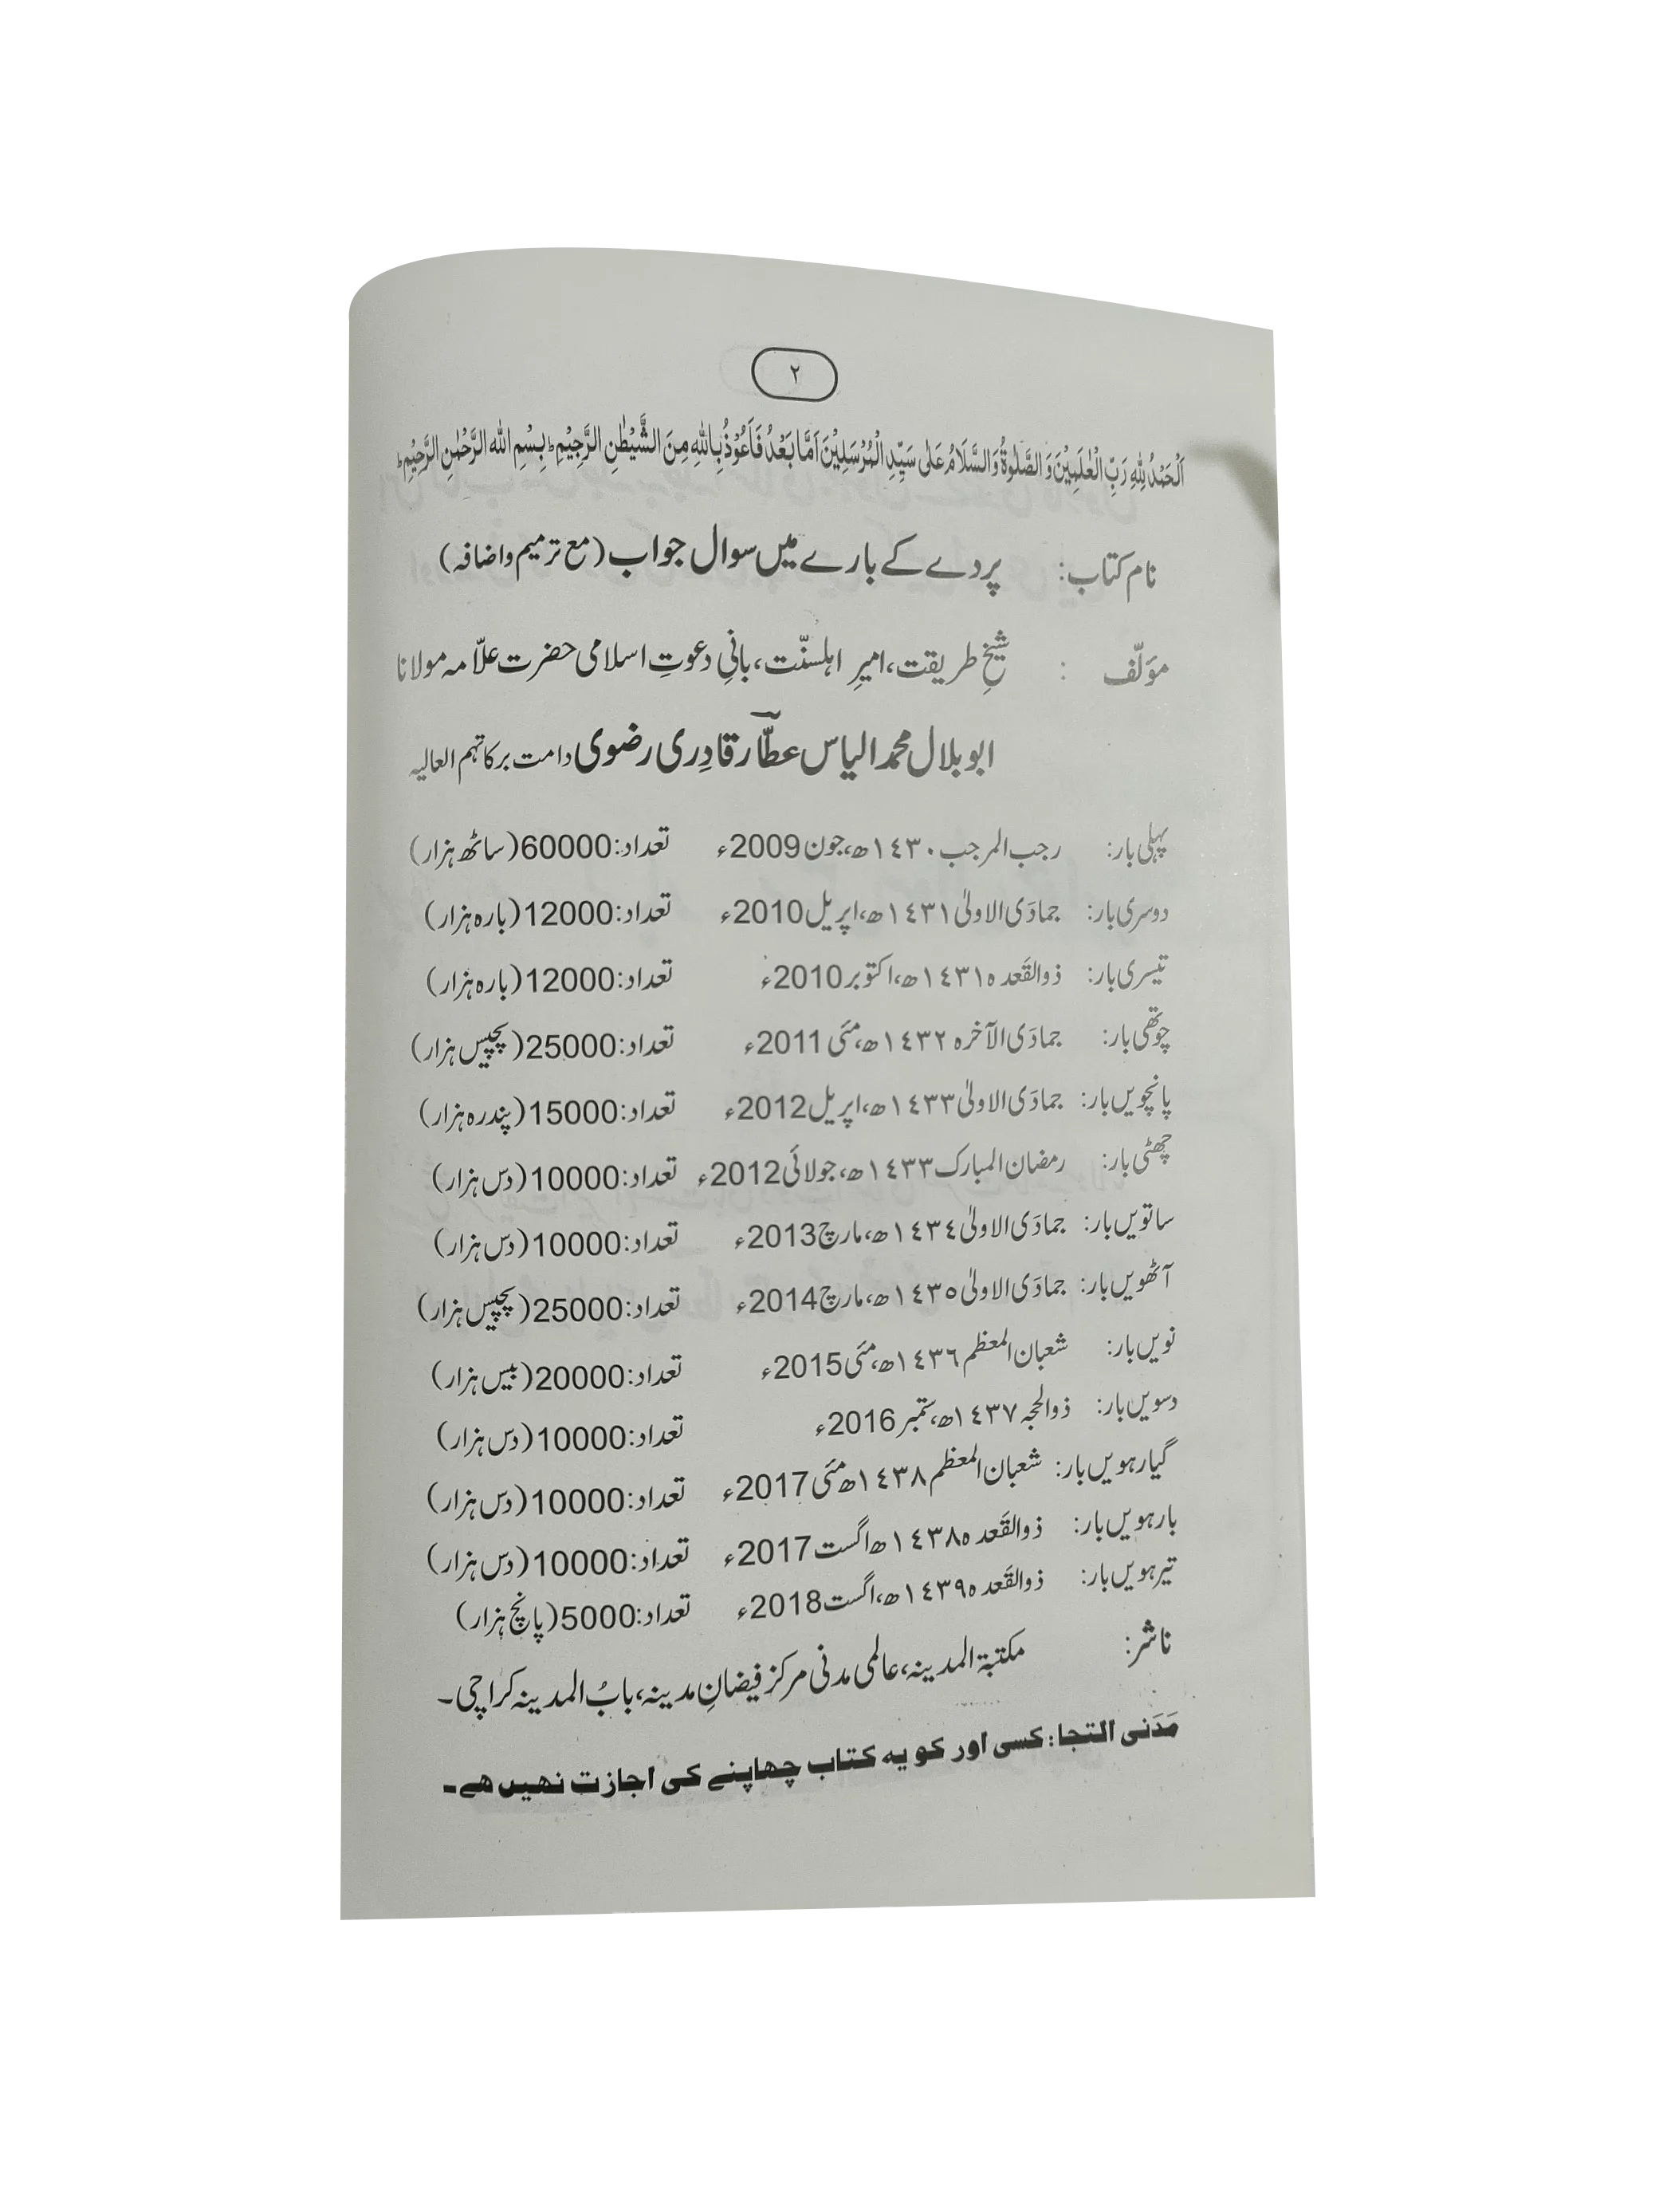 ٢
اَلْحَمْدُ لِلّٰهِ رَبِّ الْعٰلَمِيْنَ وَ الصَّلٰوةُ وَالسَّلَامُ عَلٰى سَيِّدِ الْمُرْسَلِيْنَ اَمَّا بَعْدُ فَاَعُوْذُ بِاللهِ مِنَ الشَّيْطٰنِ الرَّجِيْمِ ؕ بِسْمِ اللهِ الرَّحْمٰنِ الرَّحِيْمِ ؕ
نام کتاب: پردے کے بارے میں سوال جواب (مع ترمیم و اضافہ)
مؤلّف : شیخِ طریقت، امیرِ اہلسنّت، بانیِ دعوتِ اسلامی حضرت علاّمہ مولانا
ابو بلال محمد الیاس عطّارؔ قادِری رضوی دامت برکاتہم العالیہ
پہلی بار: رجب المرجب ١٤٣٠ھ، جون 2009ء تعداد: 60000 (ساٹھ ہزار)
دوسری بار: جمادَی الاولیٰ ١٤٣١ھ، اپریل 2010ء تعداد: 12000 (بارہ ہزار)
تیسری بار: ذوالقَعدہ ١٤٣١ھ، اکتوبر 2010ء تعداد: 12000 (بارہ ہزار)
چوتھی بار: جمادَی الآخرہ ١٤٣٢ھ، مئی 2011ء تعداد: 25000 (پچیس ہزار)
پانچویں بار: جمادَی الاولیٰ ١٤٣٣ھ، اپریل 2012ء تعداد: 15000 (پندرہ ہزار)
چھٹی بار: رمضان المبارک ١٤٣٣ھ، جولائی 2012ء تعداد: 10000 (دس ہزار)
ساتویں بار: جمادَی الاولیٰ ١٤٣٤ھ، مارچ 2013ء تعداد: 10000 (دس ہزار)
آٹھویں بار: جمادَی الاولیٰ ١٤٣٥ھ، مارچ 2014ء تعداد: 25000 (پچیس ہزار)
نویں بار: شعبان المعظم ١٤٣٦ھ، مئی 2015ء تعداد: 20000 (بیس ہزار)
دسویں بار: ذوالحجہ ١٤٣٧ھ، ستمبر 2016ء تعداد: 10000 (دس ہزار)
گیارہویں بار: شعبان المعظم ١٤٣٨ھ مئی 2017ء تعداد: 10000 (دس ہزار)
بارہویں بار: ذوالقَعدہ ١٤٣٨ھ اگست 2017ء تعداد: 10000 (دس ہزار)
تیرہویں بار: ذوالقَعدہ ١٤٣٩ھ، اگست 2018ء تعداد: 5000 (پانچ ہزار)
ناشر: مکتبۃ المدینہ، عالمی مدنی مرکز فیضانِ مدینہ، بابُ المدینہ کراچی۔
مَدَنی التجا: کسی اور کو یہ کتاب چھاپنے کی اجازت نہیں ہے۔